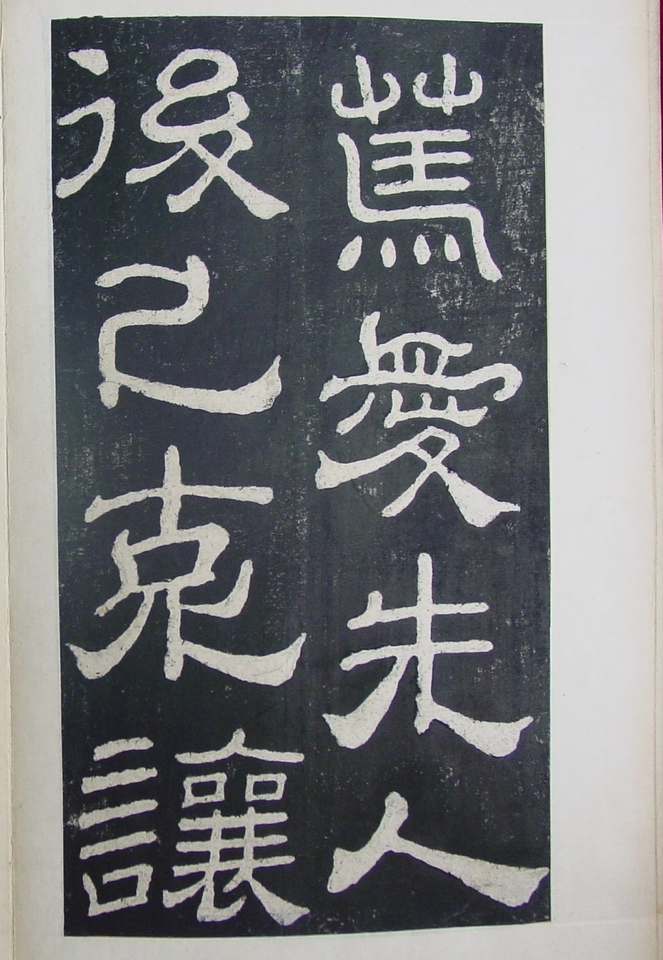 篤愛先人
後己克讓